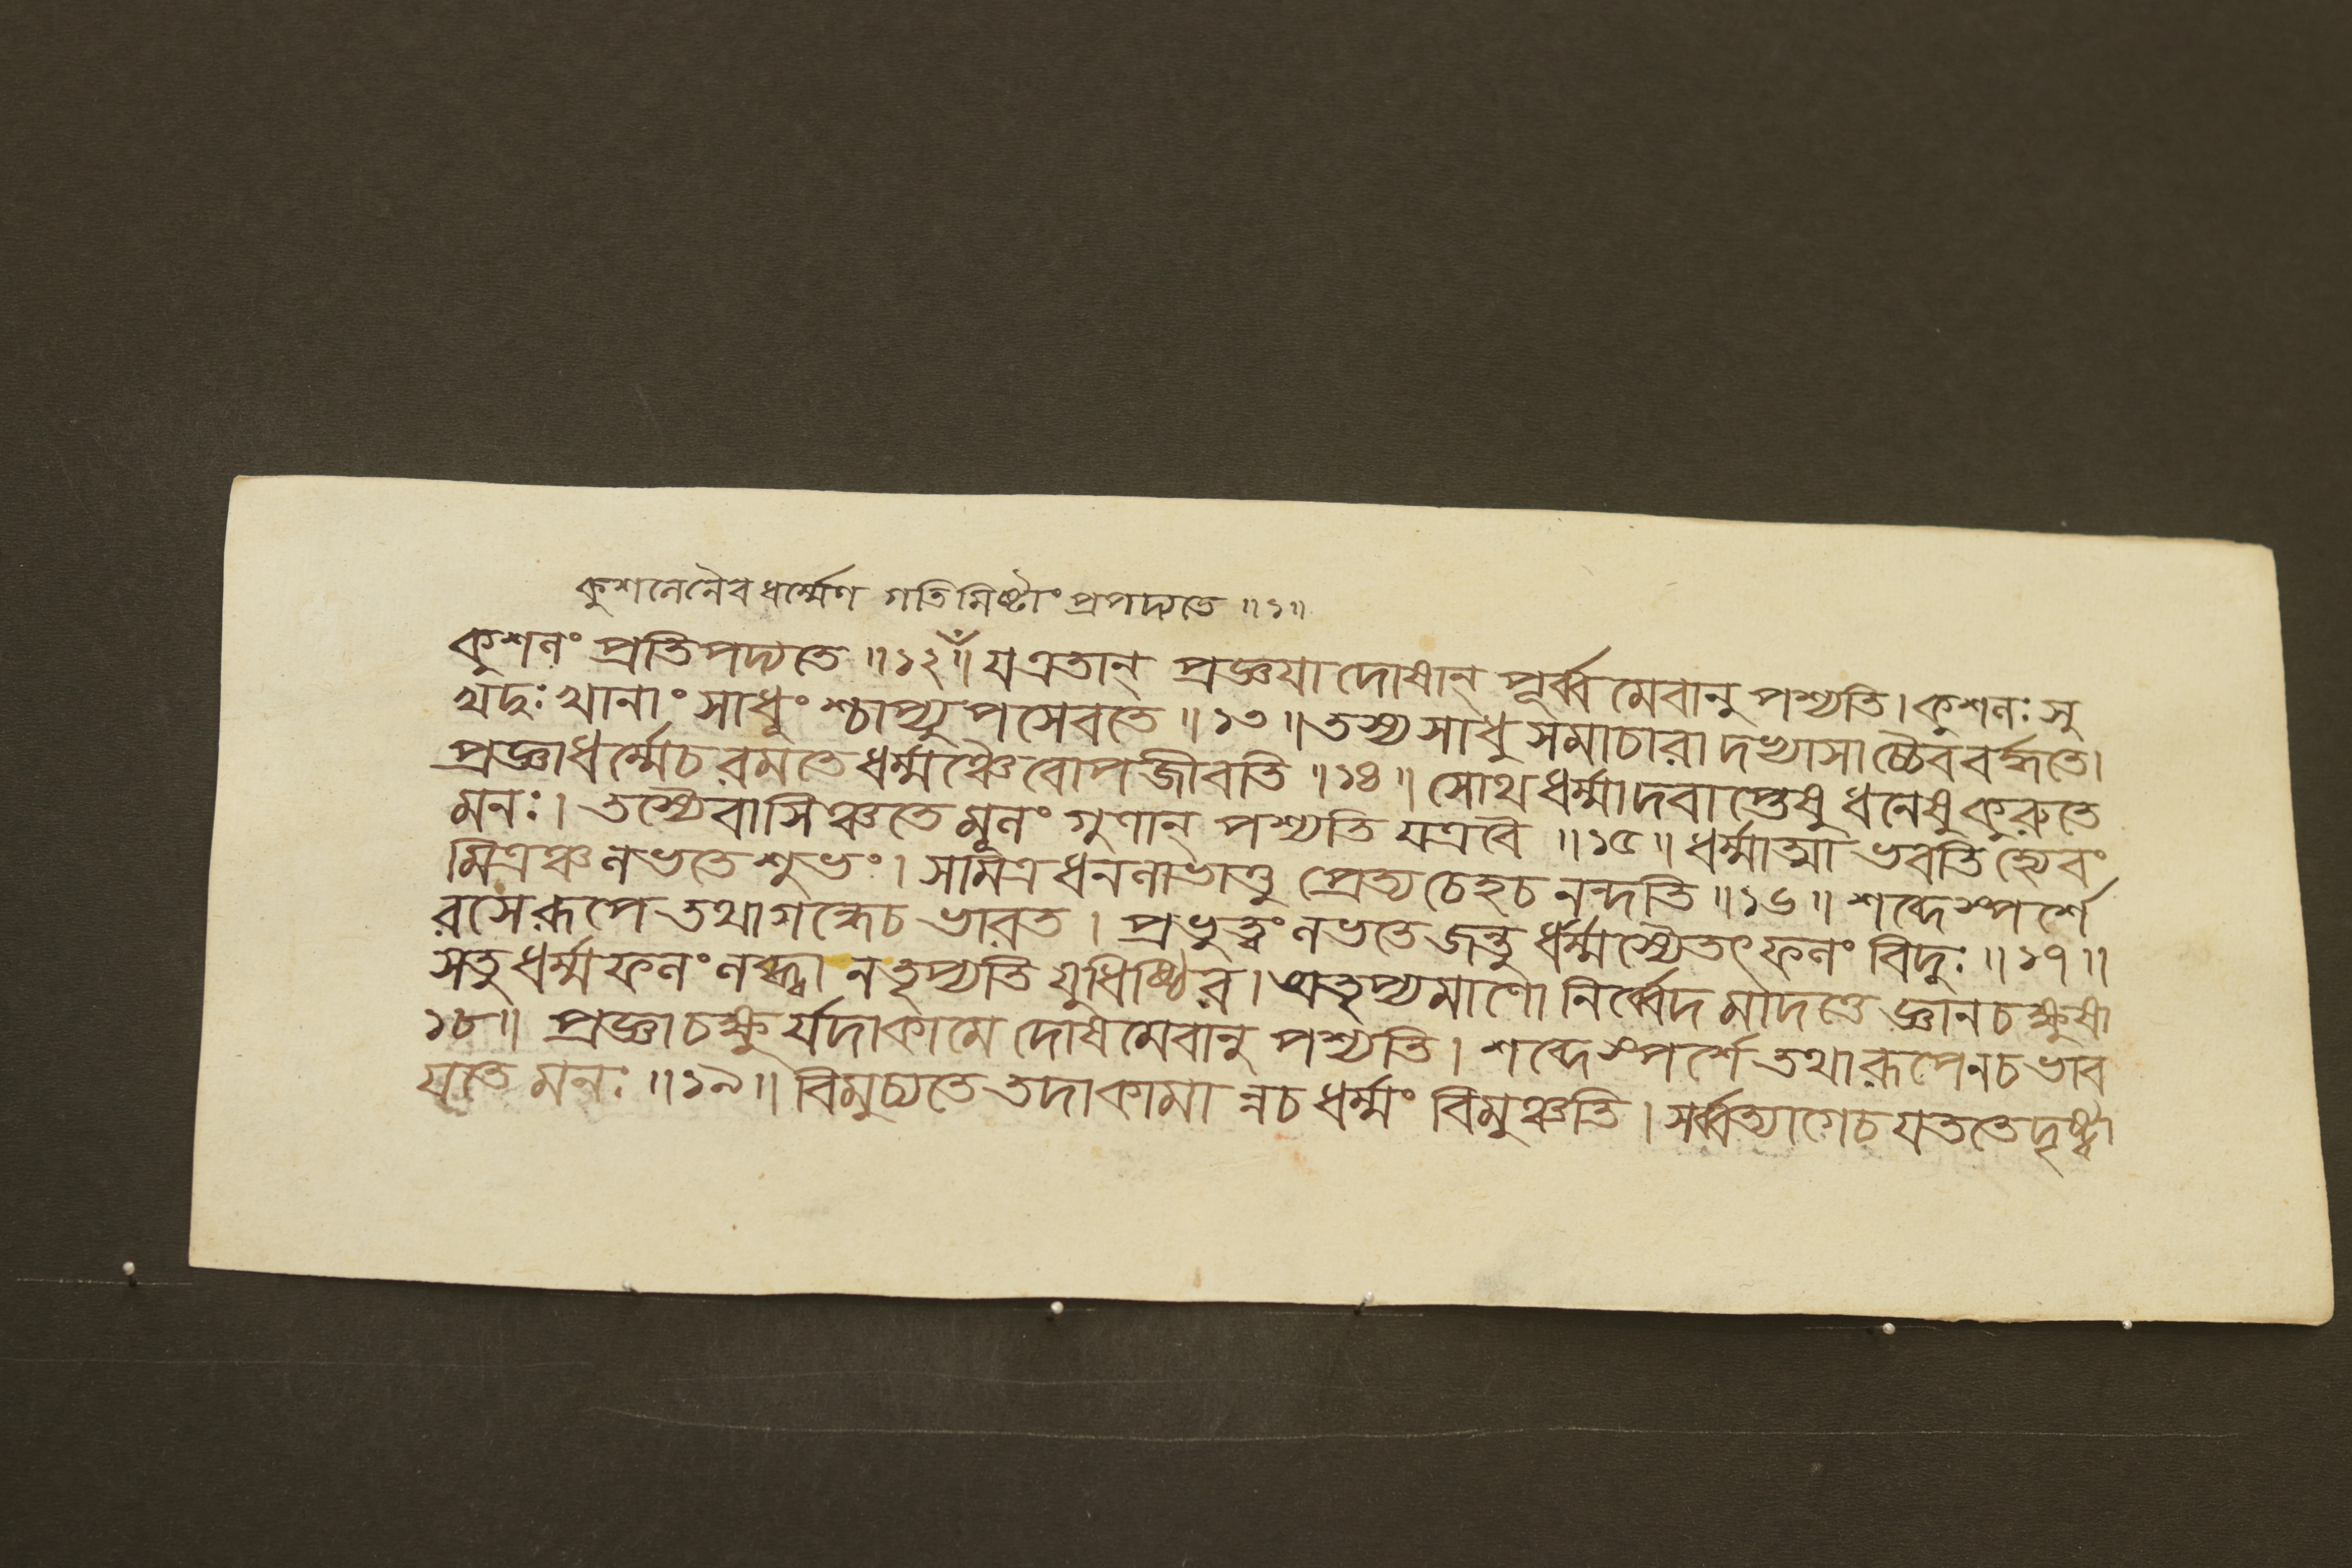 কুশলেনৈব ধর্ম্মেণ গতিমিষ্টাং প্রপদ্যতে ॥১॥
কুশলং প্রতিপদ্যতে ॥১২॥ য এতান্ প্রজ্ঞয়া দোষান্ পূর্ব্বমেবানুপশ্যতি। কুশলঃ সু
খদুঃখানাং সাধুংশ্চাপ্যুপসেবতে ॥১৩॥ তস্য সাধুসমাচারাদভ্যাসাচ্চৈব বর্দ্ধতে।
প্রজ্ঞা ধর্ম্মে চ রমতে ধর্ম্মঞ্চৈবোপজীবতি ॥১৪॥ সোথ ধর্ম্মাদবাপ্তেষু ধনেষু কুরুতে
মনঃ। তস্যৈবাসিঞ্চতে মূলং গুণান্ পশ্যতি যত্র বৈ ॥১৫॥ ধর্ম্মাত্মা ভবতি হ্যেবং
মিত্রঞ্চ লভতে শুভং। স মিত্রধনলাভাত্তু প্রেত্য চেহ চ নন্দতি ॥১৬॥ শব্দে স্পর্শে
রসে রূপে তথা গন্ধে চ ভারত। প্রভুত্বং লভতে জন্তু ধর্ম্মস্যৈতৎ ফলং বিদুঃ ॥১৭॥
স তু ধর্ম্মফলং লব্ধ্বা ন তৃপ্যতি যুধিষ্ঠির। অতৃপ্যমাণো নির্ব্বেদমাদত্তে জ্ঞানচক্ষুষা
১৮॥ প্রজ্ঞাচক্ষুর্যদা কামে দোষমেবানুপশ্যতি। শব্দে স্পর্শে তথা রূপে ন চ ভাব
য়তে মনঃ ॥১৯॥ বিমুচ্যতে তদা কামান্ন চ ধর্ম্মং বিমুঞ্চতি। সর্ব্বত্যাগে চ যততে দৃষ্ট্বা